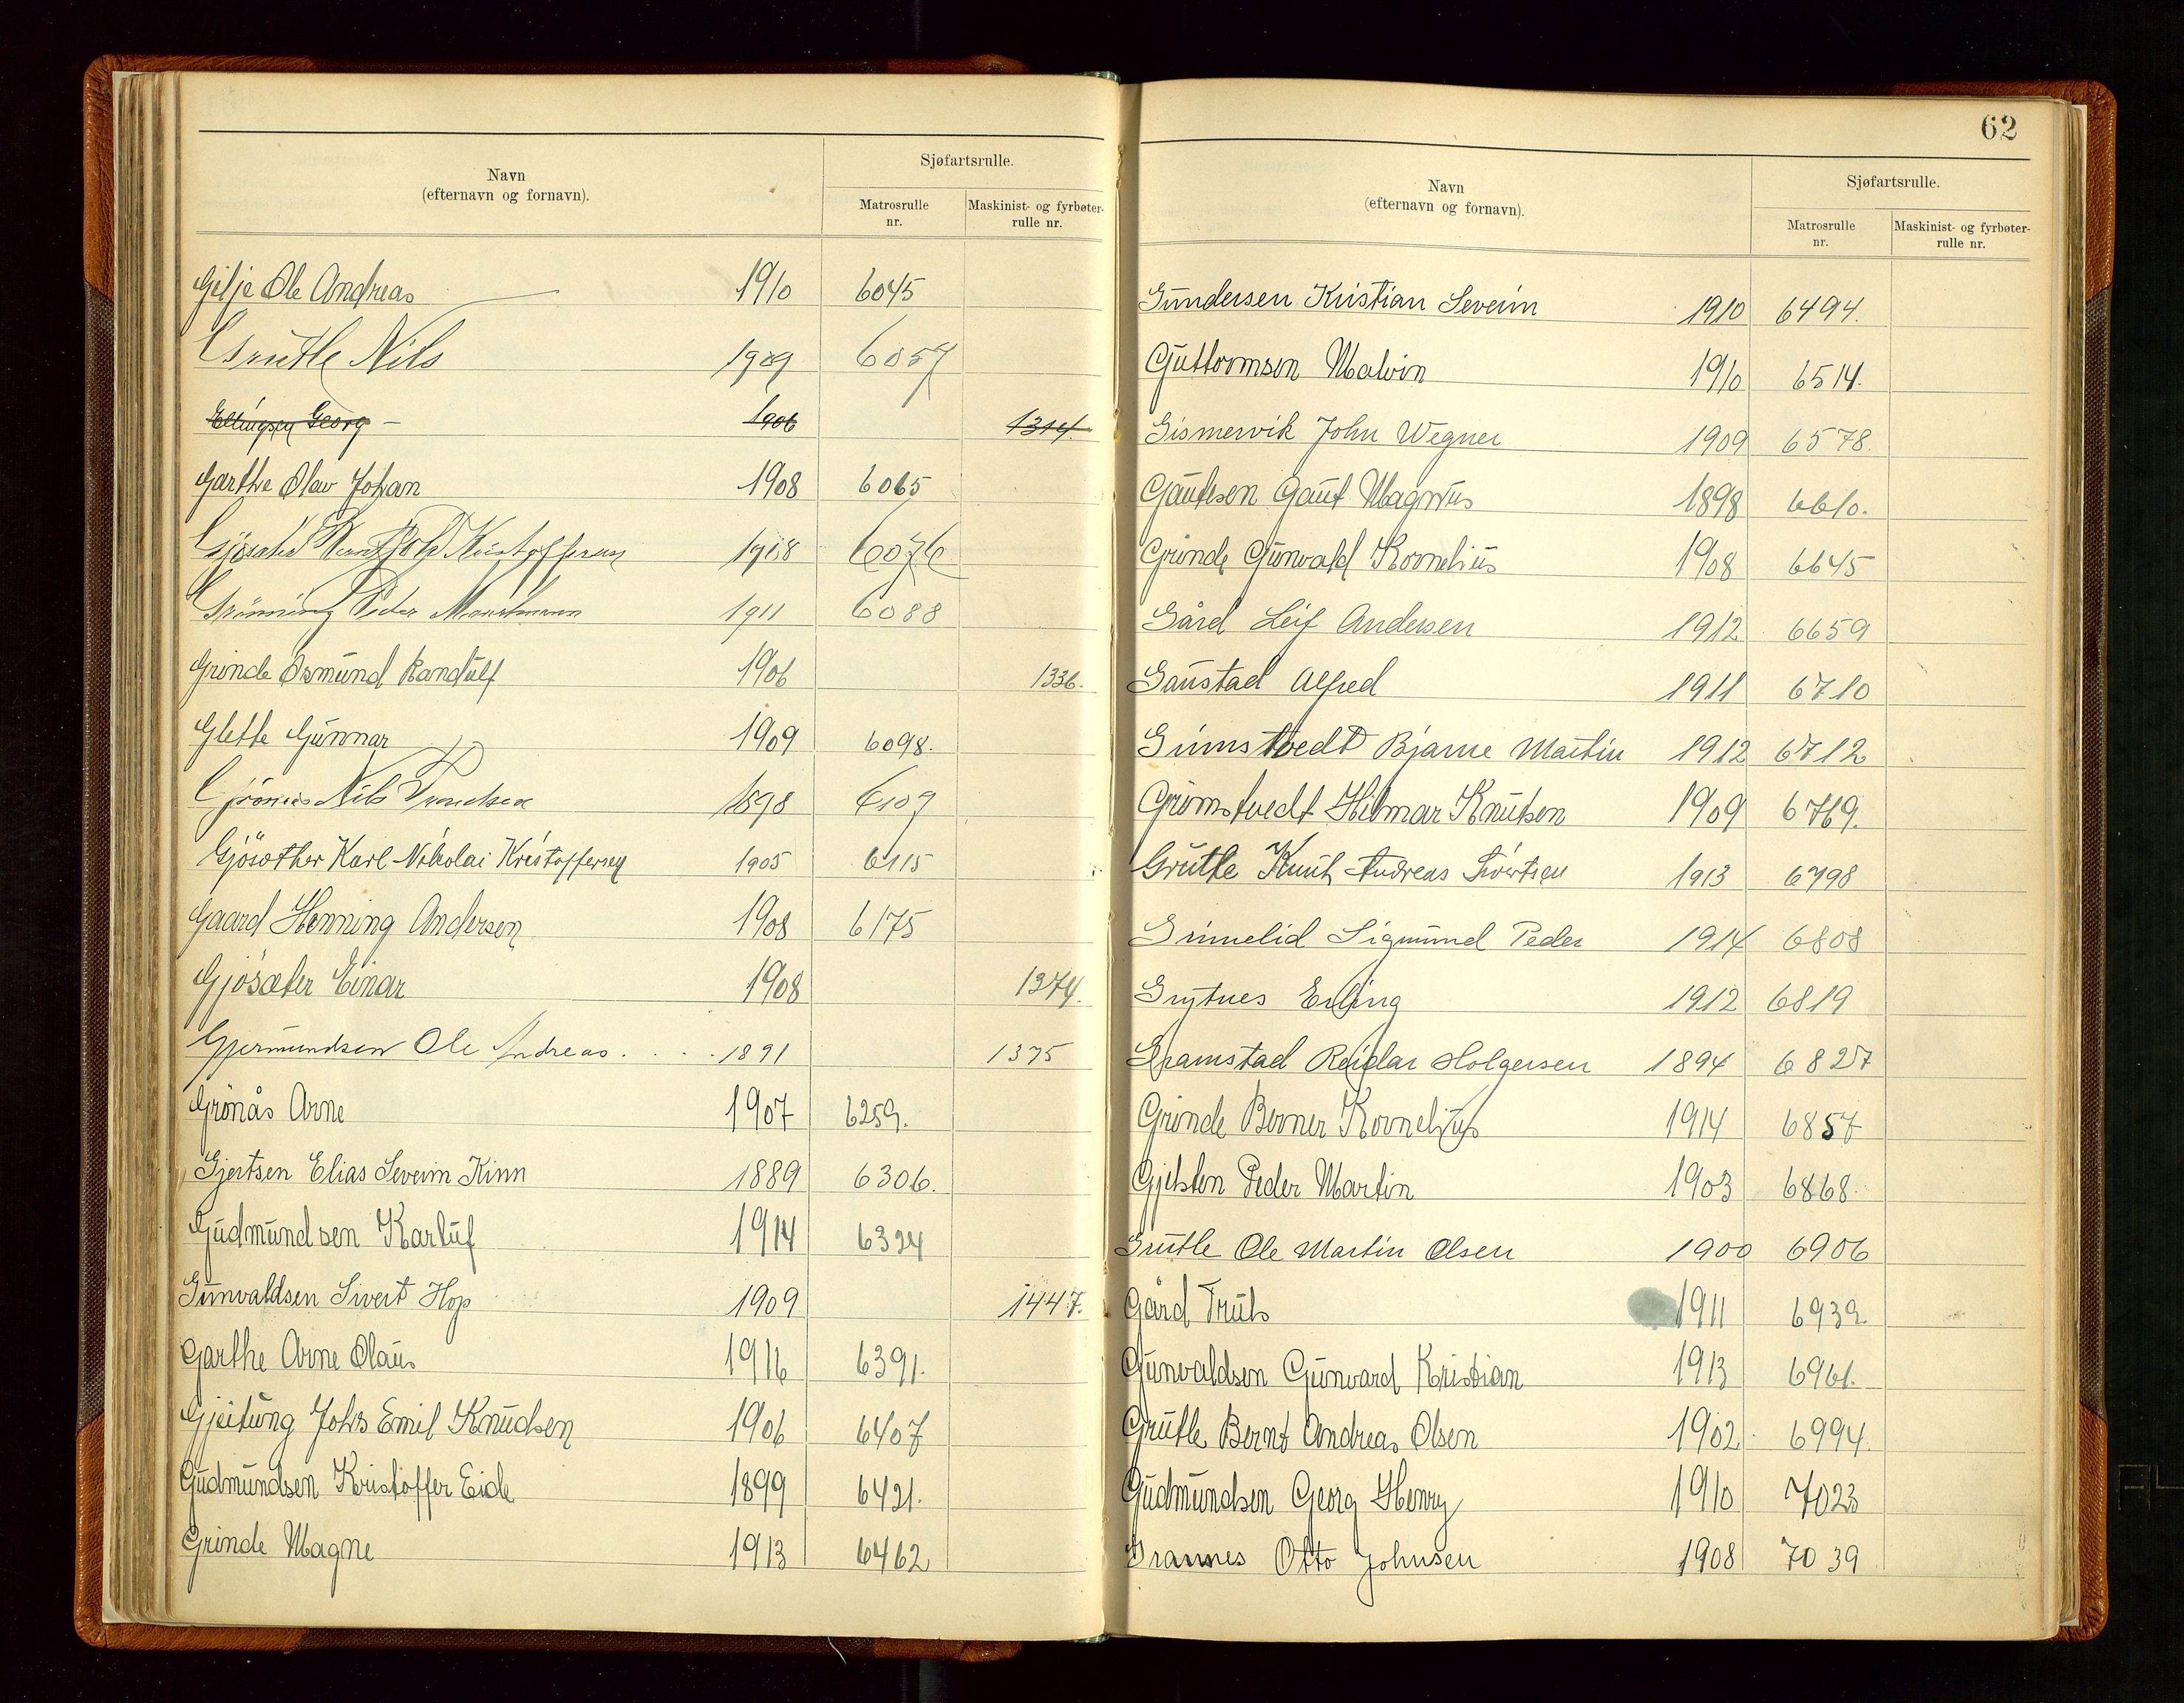 Navn
(efternavn og fornavn).
Sjøfartsrulle.
Matrosrulle nr.
Maskinist- og fyrbøter-rulle nr.
Gilje Ole Andreas 1910 6045
Grutle Nils 1909 6057
Ellingsen Georg 1906 1314.
Garthe Olav Johan 1908 6065
Gjösæter Kristoffersen 1908 6076
Grönning Peder 1911 6088
Grinde Osmund Randulf 1906 1336.
Glette Gunnar 1909 6098.
Nils 1898 6109
Gjösæther Karl Nikolai Kristoffersen 1905 6115
Gaard Henning Andersen 1908 6175
Gjösæter Einar 1908 1374.
Gjermundsen Ole Andreas 1891 1375
Grönås Arne 1907 6259.
Gjertsen Elias Severin Kinn 1889 6306.
Gudmundsen Karluf 1914 6324
Gunvaldsen Sivert Hop 1909 1447.
Garthe Arne Olaus 1916 6391.
Gjeitung Johs Emil Knudsen 1906 6407
Gudmundsen Kristoffer Eide 1899 6421.
Grinde Magne 1913 6462
62
Navn
(efternavn og fornavn).
Sjøfartsrulle.
Matrosrulle nr.
Maskinist- og fyrbøter-rulle nr.
Gundersen Kristian Severin 1910 6494.
Guttormsen Malvin 1910 6514.
Gismervik John Wegner 1909 6578.
Gautesen Gaut Magnus 1898 6610.
Grinde Gunvald Kornelius 1908 6645
Gård Leif Andersen 1912 6659
Gaustad Alfred 1911 6710
Grimstvedt Bjarne Martin 1912 6712
Grimstvedt Hilmar Knutsen 1909 6769.
Grutle Knut Andreas Sivertsen 1913 6798
Grinnelid Sigmund Peder 1914 6808
Grytnes Erling 1912 6819
Gramstad Reidar Holgersen 1894 6827
Grinde Berner Kornelius 1914 6857
Gjelsten Peder Martin 1903 6868
Grutle Ole Martin Olsen 1900 6906
Gård Truls 1911 6939.
Gunvaldsen Gunvard Kristian 1913 6961.
Grutle Bernt Andreas Olsen 1902 6994.
Gudmundsen Georg Henry 1910 7023
Grannes Otto Johnsen 1908 7039